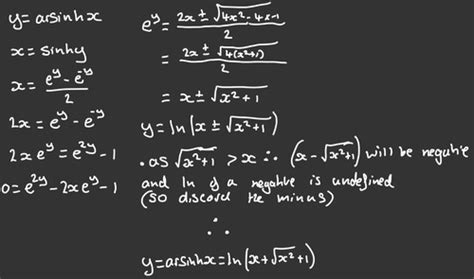 y=arsinhx
x=sinhy
x=\frac{e^y-e^{-y}}{2}
2x=e^y-e^{-y}
2xe^y=e^{2y}-1
0=e^{2y}-2xe^y-1
e^y=\frac{2x±\sqrt{4x^2-4x-1}}{2}
=\frac{2x±\sqrt{4(x^2+1)}}{2}
=x±\sqrt{x^2+1}
y=ln(x±\sqrt{x^2+1})
•as \sqrt{x^2+1}>x ∴ (x-\sqrt{x^2+1}) will be negative
and ln of a negative is undefined
(so discard the minus)
∴
y=arsinhx=ln(x+\sqrt{x^2+1})